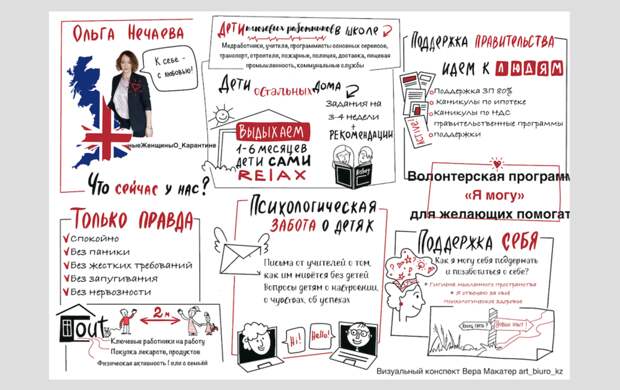 Ольга Нечаева
К себе -
с любовью!
ныеЖенщиныО_Карантине
Что сейчас у нас?
Дети ключевых работников в школе
Медработники, учителя, программисты основных сервисов,
транспорт, строители, пожарные, полиция, доставка, пищевая
промышленность, коммунальные службы
Дети остальных дома
Задания на
3-4 недели
+
рекомендации
Выдыхаем
1-6 месяцев
дети сами
RElAX
History
Поддержка правительства
идем к людям
Поддержка ЗП 80%
Каникулы по ипотеке
Каникулы по НДС
правительственные программы
поддержки
Active!
Волонтерская програм
«Я могу»
для желающих помогат
Только правда
Спокойно
Без паники
Без жестких требований
Без запугивания
Без нервозности
Tout
2 м
Ключевые работники на работу
Покупка лекарств, продуктов
Физическая активность 1 или с семьёй
Психологическая
забота о детях
Письма от учителей о том,
как им живётся без детей
Вопросы детям о настроении,
о чувствах, об успехах
Hi!
Hello!
Поддержка себя
Как я могу себя поддержать
и позаботиться о себе?
Гигиена мысленного пространства
Я отвечаю за своё
психологическое здоровье
Новый опыт!
Визуальный конспект Вера Макатер art_biuro_kz